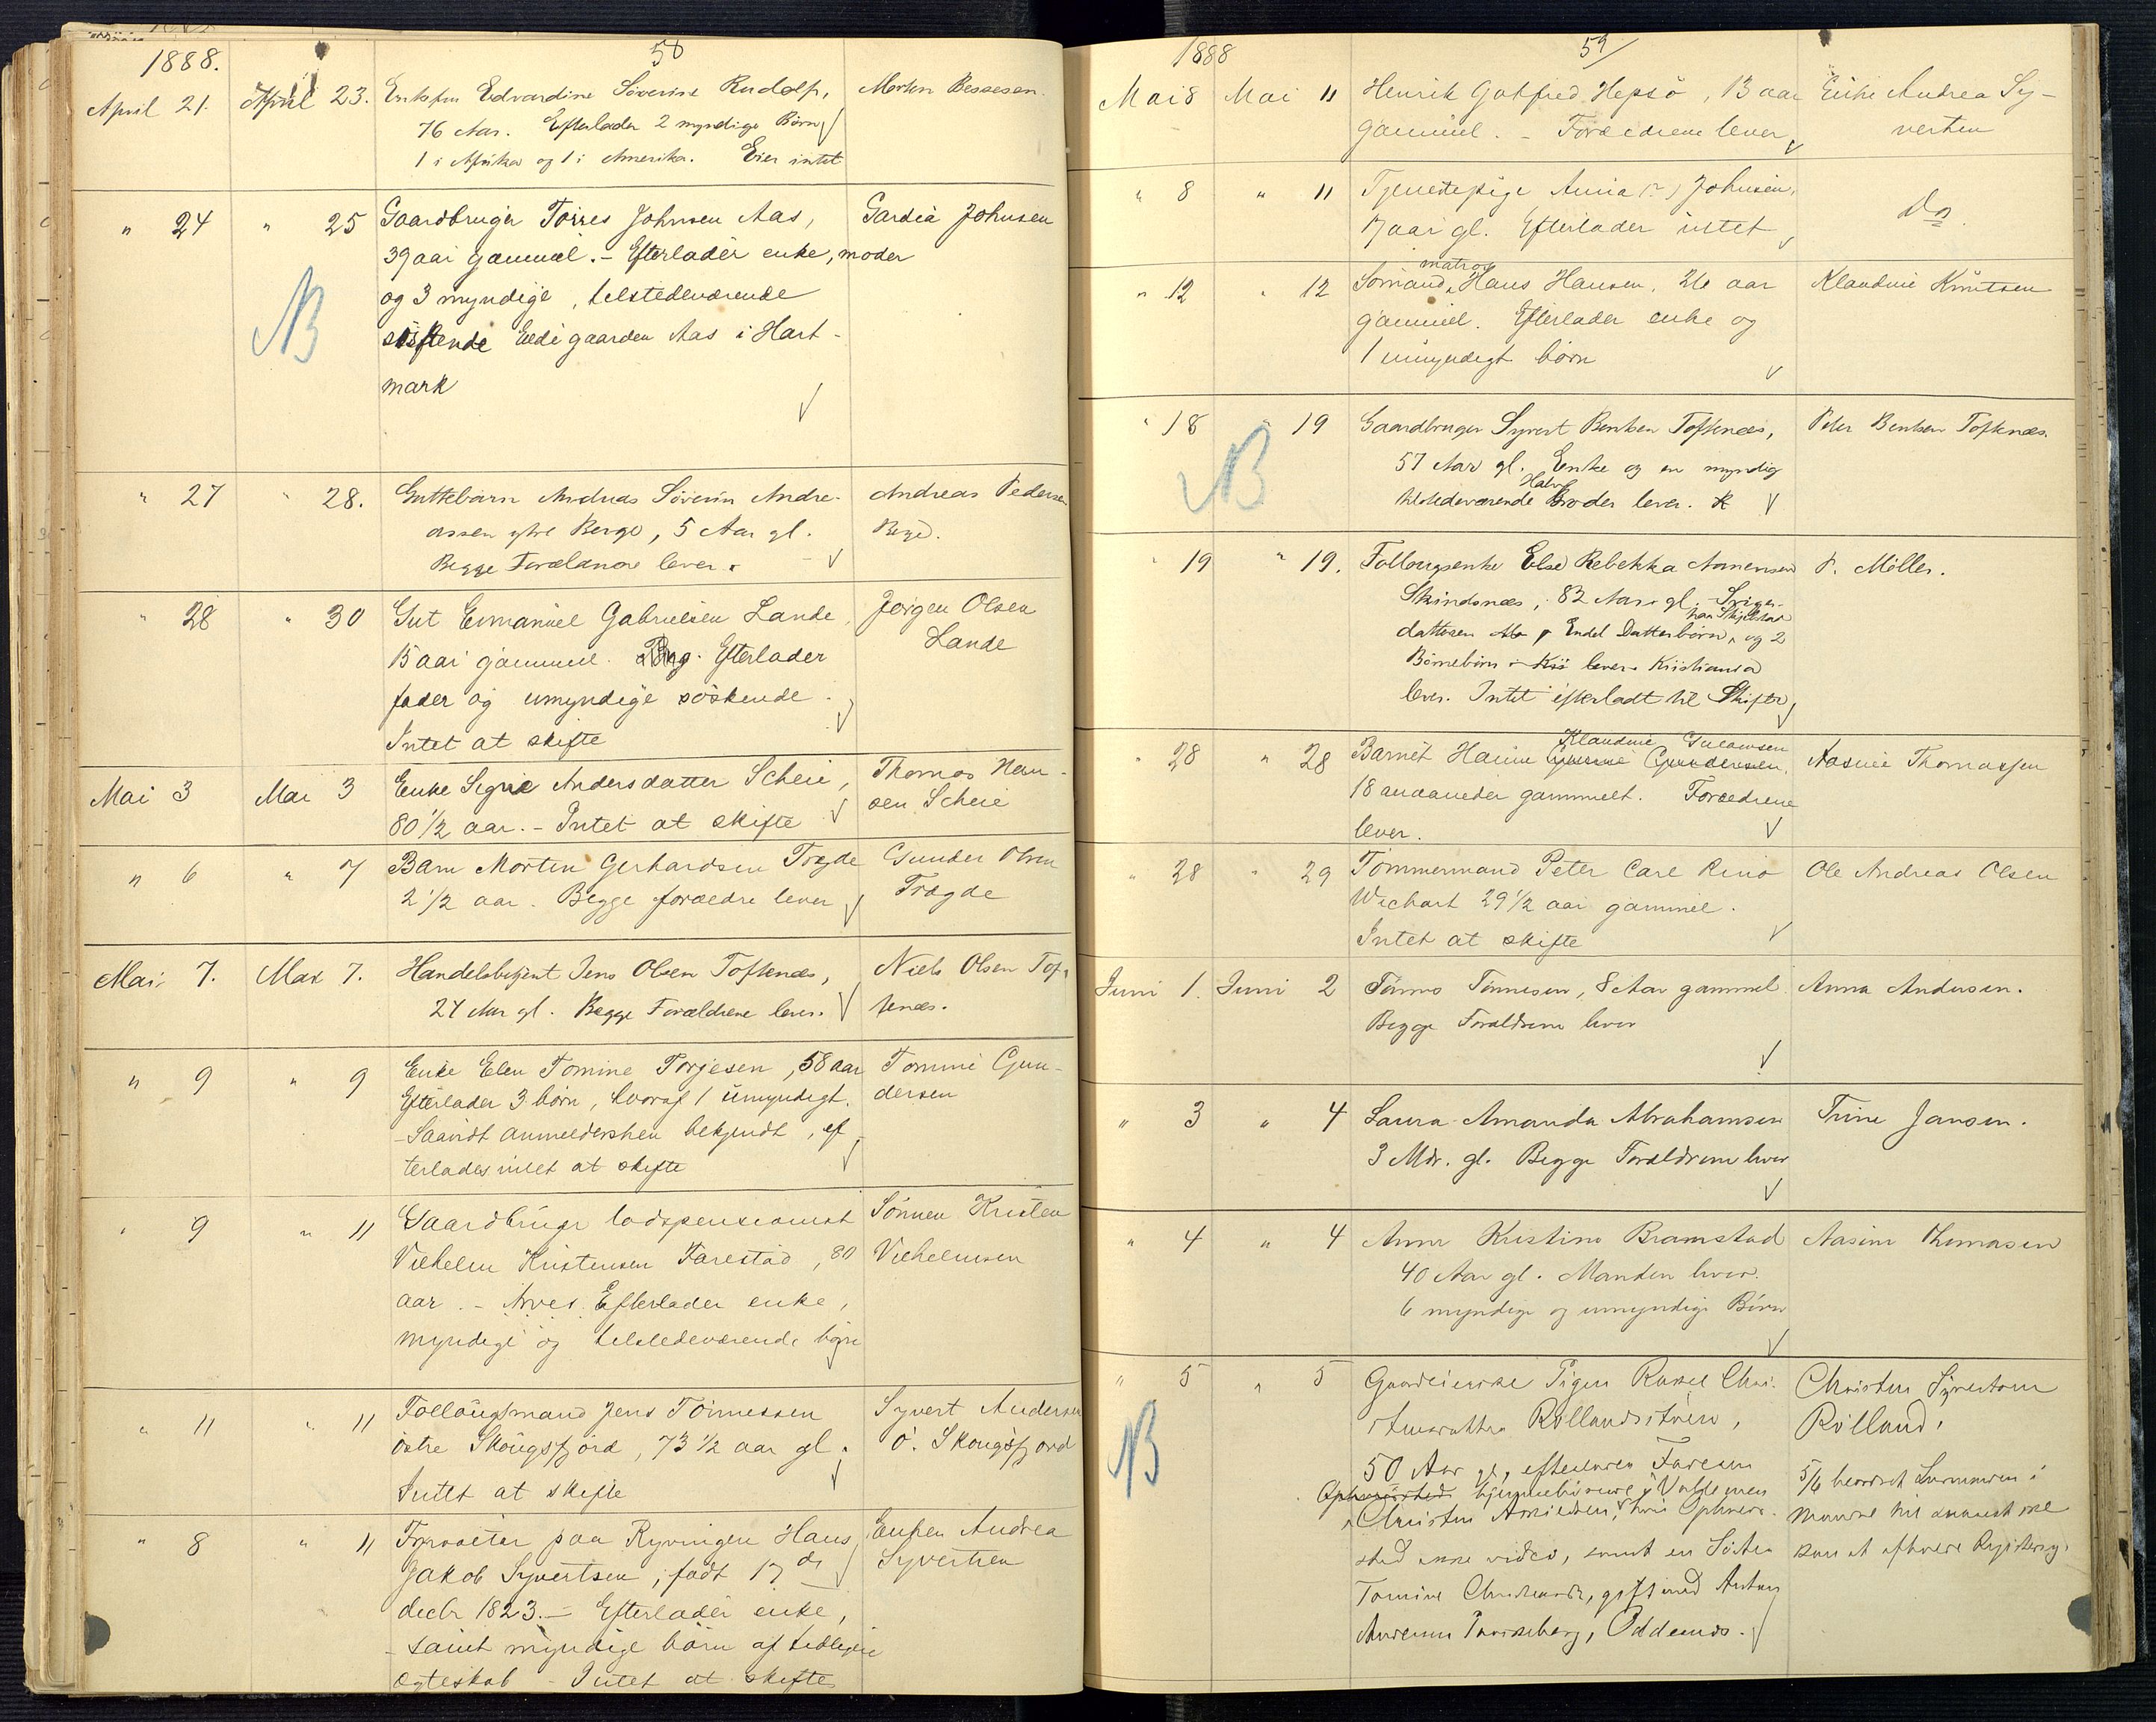 1888.
58
April 21. April 23. Enkefru Edvardine Söverine Rudolf, Morten Bessesen.
76 Aar. Efterlader 2 myndige Børn
1 i Afrika og 1 i Amerika. Eier intet
" 24 " 25 Gaardbruger Torres Johnsen Aas, Gardea Johnsen
39 aar gammel. - Efterlader enke, moder
og 3 myndige, telstedeværende
söskende Eiede gaarden Aas i Hart-
mark
NB
" 27 " 28. Guttebarn Andreas Söverin Andre- Andreas Pedersen
assen ytre Berge, 5 Aar gl. Berge.
Begge Forældrene lever.
" 28 " 30 Gut Emanuel Gabrielsen Lande, Jørgen Olsen
15 aar gammel. Efterlader Lande
fader og umyndige söskende.
Intet at skifte
Mai 3 Mai 3 Enke Signe Andersdatter Scheie, Thomas Han-
80 1/2 aar. - Intet at skifte sen Scheie
" 6 " 7 Barn Morten Gerhardsen Trægde Gunder Olsen
2 1/2 aar. Begge forældre lever Trægde
Mai 7. Mai 7. Handelsbetjent Jens Olsen Toftenæs, Niels Olsen Tof-
27 Aar gl. Begge Forældrene lever. tenæs.
" 9 " 9 Enke Elen Tomine Torjesen, 58 aar Tomine Gun-
Efterlader 3 børn, hvoraf 1 umyndigt. dersen
- Saavidt anmeldersken bekjendt, ef-
terlades intet at skifte
" 9 " 11 Gaardbruger lodspensionist Sönnen Kristen
Vilhelm Kristensen Farestad, 80 Vilhelmsen
aar. - Efterlader enke,
myndige og telstedeværende børn
" 11 " 11 Føllougsmand Jens Tönnessen Syvert Andersen
östre Skougsfjord, 73 1/2 aar gl. Ö. Skougsfjord
Intet at skifte
" 8 " 11 Fyrvogter paa Ryvingen Hans Enken Andrea
Jakob Syvertsen, født 17de Syvertsen
decbr 1823. - Efterlader enke,
- samt myndige børn af tidligere
ægteskab - Intet at skifte
1888
59
Mai 8 Mai 11 Henrik Gotfred Hepsö, 13 aar Enke Andrea Sy-
gammel. - Forældrene lever vertsen
" 8 " 11 Tjenestepige Anna (?) Johnsen, Do.
17 aar gl. Efterlader intet
matros
" 12 " 12 Sömand Hans Hansen, 26 aar Klaudine Knutsen
gammel. Efterlader enke og
1 umyndigt børn
" 18 " 19 Gaardbruger Syvert Bentsen Toftenæs, Peter Bentsen Toftenæs.
57 Aar gl. Enke og en myndig
Halv
tilstedeværende Broder lever.
NB
" 19 " 19. Føllougsenke Else Rebekka Aanensen P. Möller.
Skindsnæs, 82 Aar gl. Sviger-
paa Skjelsnæs
dattersen Endel Datterbørn, og 2
Børnebørn i lever Kristiansa
lever. Intet efterladt til Skifte
Klaudine Gulowsen
" 28 " 28 Barnet Hanne Gundersen, Aasine Thomassen
18 maaneder gammelt. Forældrene
lever.
" 28 " 29 Tömmermand Peter Carl Reno Ole Andreas Olsen
Wichart 29 1/2 aar gammel.
Intet at skifte
Juni 1. Juni 2 Tönnes Tönnesen, 8 Aar gammel. Anna Andersen.
Begge Forældrene lever
" 3 " 4 Laura Amanda Abrahamsen Trine Jansen.
3 Mdr. gl. Begge Forældrene lever
" 4 " 4 Anna Kristine Bramstad Aasine Thomassen
40 Aar gl. Manden lever.
6 myndige og umyndige Børn
" 5 " 5 Gaardeierske Pigen Rakel Chri- Christen Syvertsen
stensdatter Röllandströen, Rölland,
50 Aar gl, efterlader Faren
hjemmeværende Valdemar 5/6 Lensmanden i
Christen hvis Opholds-
sted ikke vides, samt en Söster
Tomine Christensdtr, gift med
NB